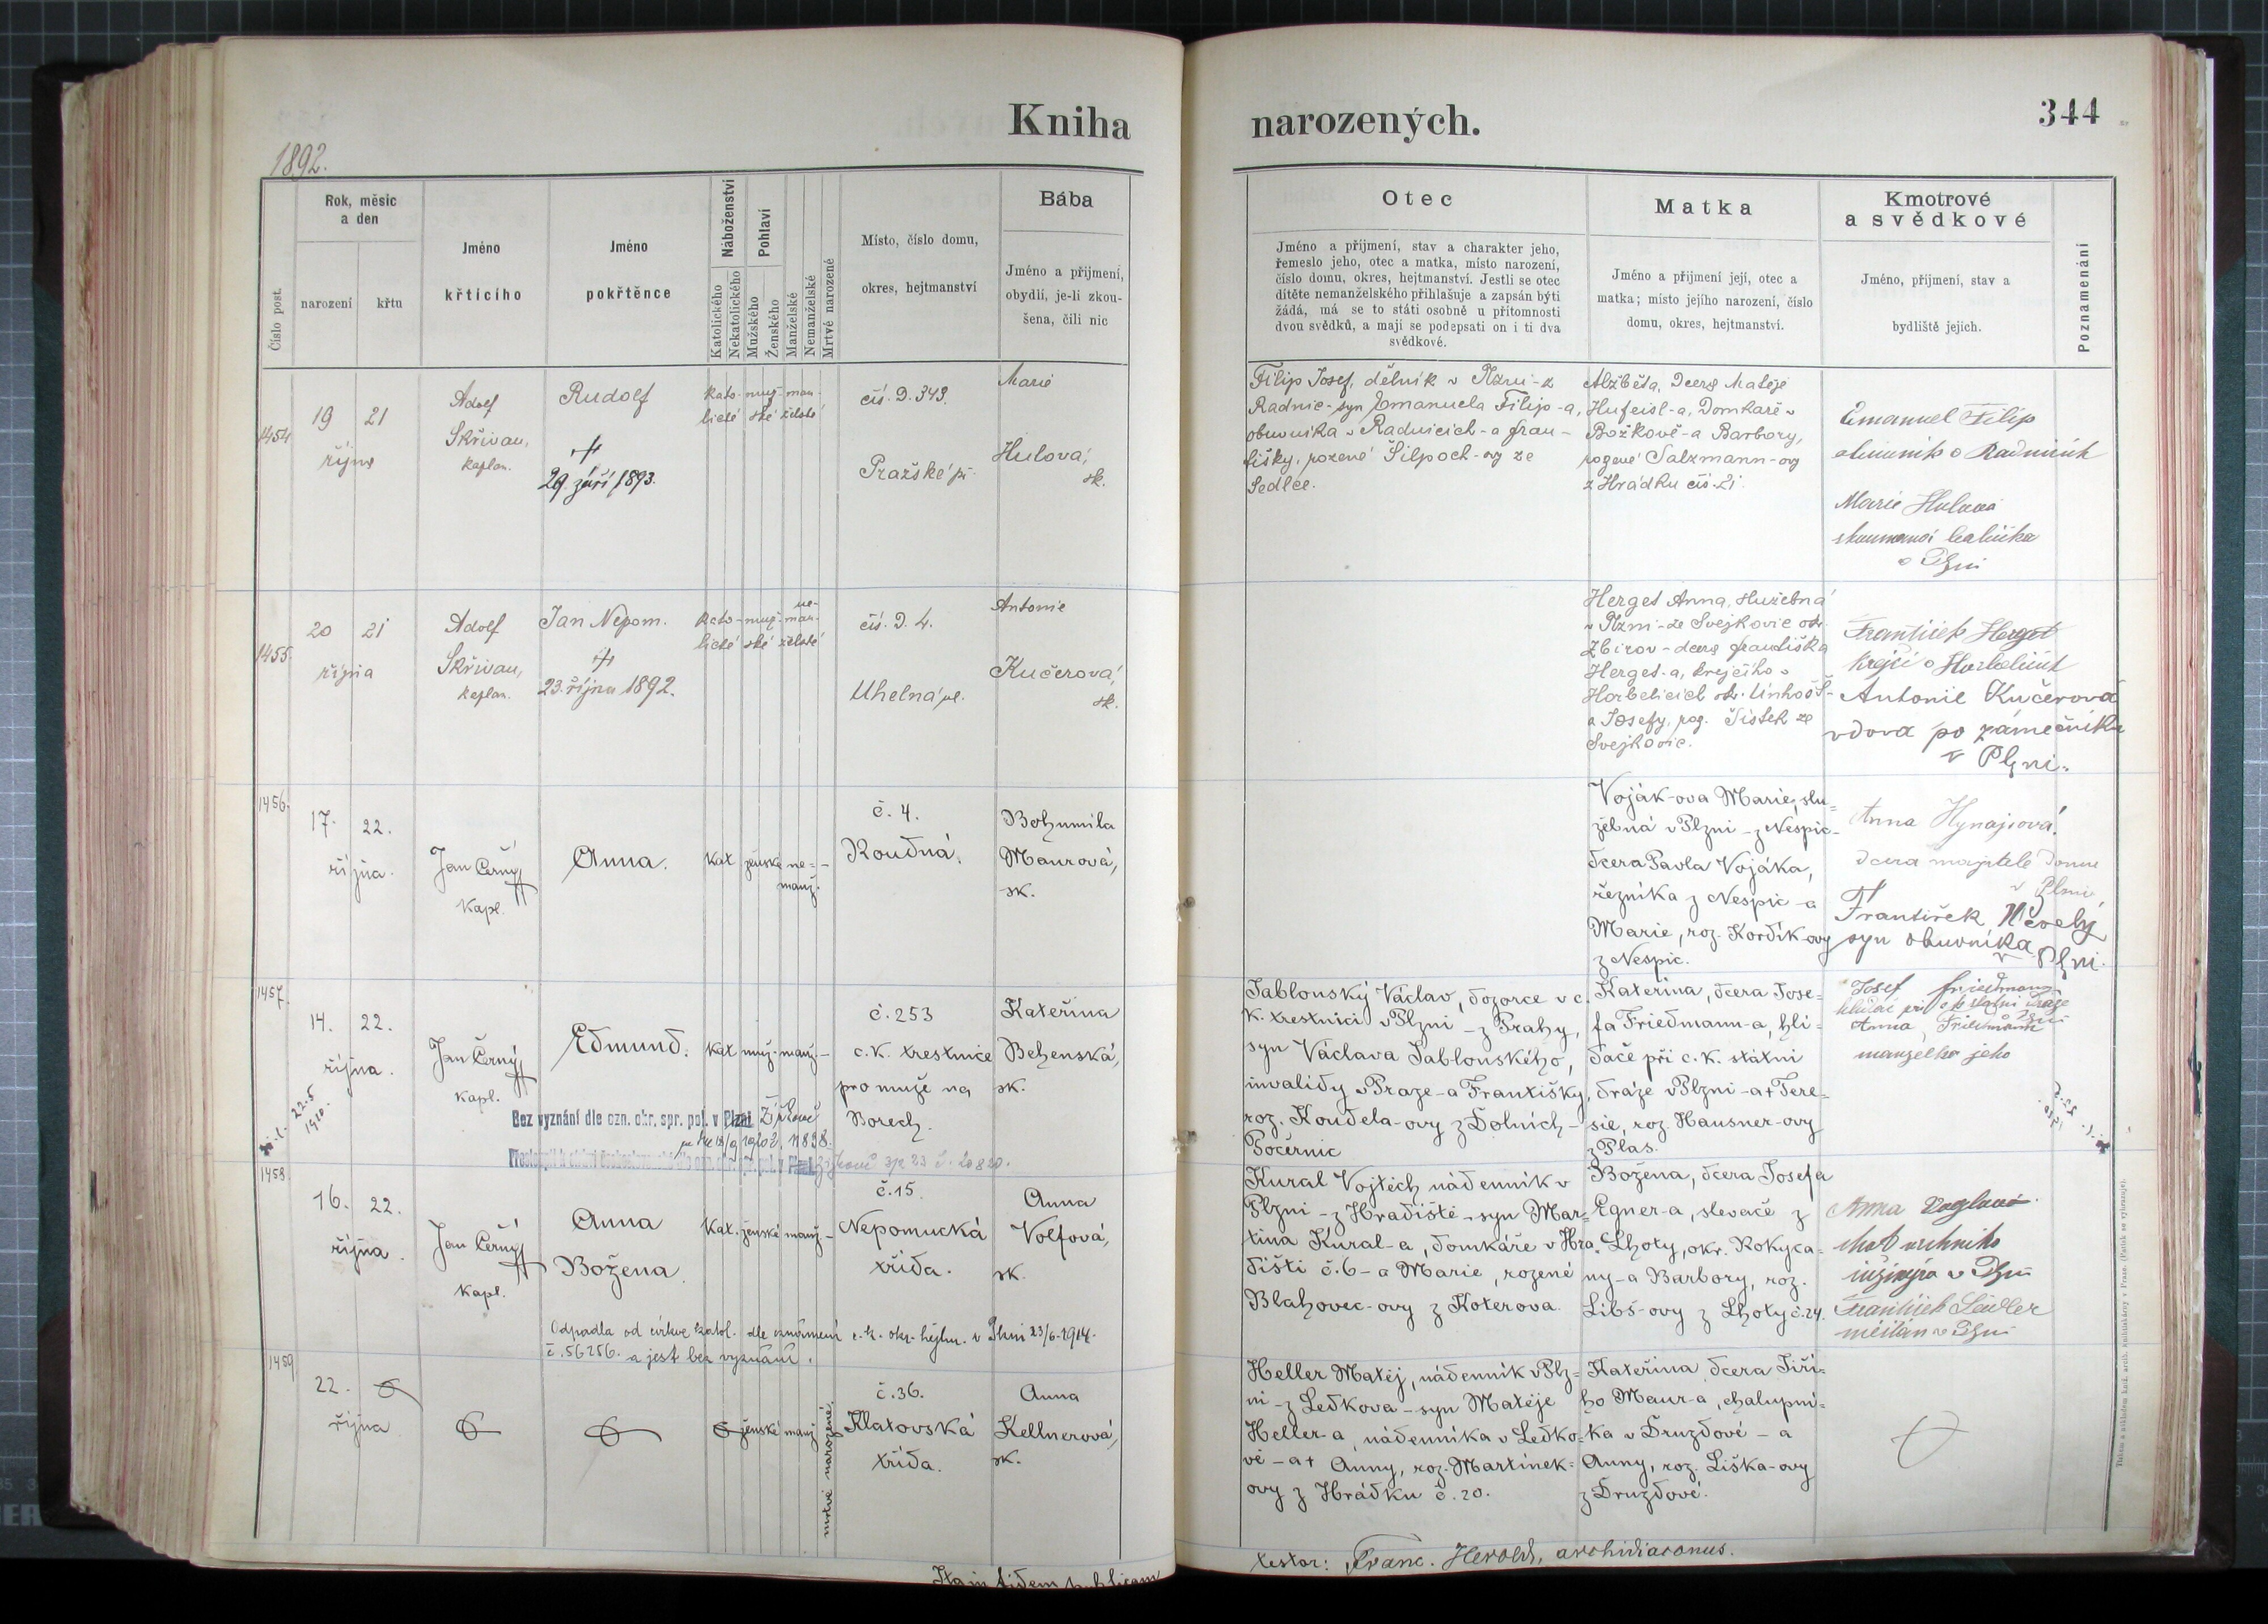 Kniha
narozených.
344
1892.
Číslo post.
Rok, měsíc
a den
narození
křtu
Jméno
křtícího
Jméno
pokřtěnce
Náboženství
Katolického
Nekatolického
Pohlaví
Mužského
Ženského
Manželské
Nemanželské
Mrtvě narozené
Místo, číslo domu,
okres, hejtmanství
Bába
Jméno a příjmení,
obydlí, je-li zkou-
šena, čili nic
Otec
Jméno a příjmení, stav a charakter jeho,
řemeslo jeho, otec a matka, místo narození,
číslo domu, okres, hejtmanství. Jestli se otec
dítěte nemanželského přihlašuje a zapsán býti
žádá, má se to státi osobně u přítomnosti
dvou svědků, a mají se podepsati on i ti dva
svědkové.
Matka
Jméno a příjmení její, otec a
matka; místo jejího narození, číslo
domu, okres, hejtmanství.
Kmotrové
a svědkové
Jméno, příjmení, stav a
bydliště jejich.
Poznamenání
1454
19 21
října
Adolf
Skřivan,
kaplan.
Rudolf
29. září 1893.
kato- muž- man-
lické ské želské
čís. D. 343.
Pražské př.
Marie
Hulova,
zk.
Filip Josef, dělník v Plzni - z
Radnic - syn Emanuela Filip-a,
obuvníka v Radnicích - a Fran-
tišky, rozené Šilpoch-ovy ze
Sedlce.
Alžběta, dcera Matěje
Hufeisl-a, Domkaře v
Božkově - a Barbory,
rozené Salzmann-ovy
z Hrádku čís. 21.
Emanuel Filip
obuvník v Radnicích
Marie Hulova
zkoumaná babička
v Plzni
1455
20 21
října
Adolf
Skřivan,
kaplan.
Jan Nepom.
23. října 1892.
ne-
kato- muž- man-
lické ské želské
čís. D. 4.
Uhelná ul.
Antonie
Kučerová,
zk.
Herget Anna, služebná
v Plzni - ze Svejkovic okr.
Zbirov - dcera Františka
Herget-a, krejčího v
Horbelicích okr. Unhošť -
a Josefy, roz. Šistek ze
Svejkovic.
František Herget
krejčí v Horbelicích
Antonie Kučerová
vdova po zámečníku
v Plzni.
1456.
17. 22.
října.
Jan Černý
kapl.
Anna.
kat. ženské ne= -
manž.
č. 4.
Roudná.
Bohumila
Maurová,
zk.
Voják-ova Marie, slu=
žebná v Plzni - z Nespic -
dcera Pavla Vojáka,
řezníka z Nespic - a
Marie, roz. Kordík-ovy
z Nespic.
Anna Hynajsová
dcera majitele domu
v Plzni,
František
syn obuvníka
v Plzni.
1457.
14. 22.
října.
Jan Černý
kapl.
Edmund.
kat. muž. manž. -
č. 253
c. k. trestnice
pro muže na
Borech.
Kateřina
Behenská,
zk.
Jablonský Václav, dozorce v c.
k. trestnici v Plzni - z Prahy,
syn Václava Jablonského,
invalidy v Praze - a Františky,
roz. Koudela-ovy z Dolních -
Počernic
Kateřina, dcera Jose=
fa Friedmann-a, hlí=
dače při c. k. státní
dráze v Plzni - a † Tere=
sie, roz. Hausner-ovy
z Plas.
Josef Friedmann
hlídač při c. k. státní dráze
v Plzni
Anna Friedmann
manželka jeho
22.5
1920.
Bez vyznání dle ozn. okr. spr. pol. v Plzni Žižkově
1458.
16. 22.
října.
Jan Černý
kapl.
Anna
Božena.
Kat. ženské manž. -
č. 15.
Nepomucká
třída.
Anna
Volfová,
zk.
Kural Vojtěch nádenník v
Plzni - z Hradiště - syn Mar=
tina Kural-a, domkáře v Hra=
dišti č. 6 - a Marie, rozené
Blahovec-ovy z Koterova.
Božena, dcera Josefa
Egner-a, slevače z
Lhoty, okr. Rokyca=
ny - a Barbory, roz.
Libš-ovy z Lhoty č. 24.
Anna Voglová
choť vrchního
inžinýra v Plzni
František Seidler
měšťan v Plzni
Odpadla od církve katol. dle oznámení c. k. okr. hejtm. v Plzni 23/6. 1914.
č. 56256. a jest bez vyznání.
1459
22.
října
ženské manž.
mrtvě narozené.
č. 36.
Klatovská
třída.
Anna
Kellnerová,
zk.
Heller Matěj, nádenník v Plz=
ni - z Ledkova - syn Matěje
Heller-a, nádenníka v Ledko=
vě - a † Anny, roz. Martínek=
ovy z Hrádku č. 20.
Kateřina dcera Jiří=
ho Maur-a, chalupní=
ka v Druzdové - a
Anny, roz. Liška-ovy
z Druzdové.
Ita in fidem publicam
testor: Franc. Herold, archidiaconus.